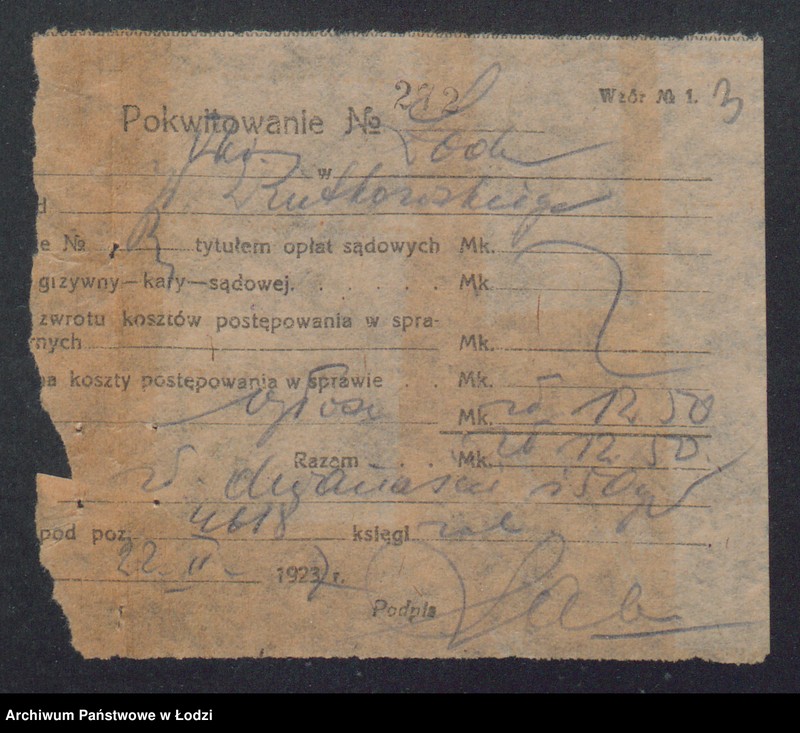 Wzór № 1. 3
Pokwitowanie №
w Łodzi
d Rutkowskiego
e № tytułem opłat sądowych Mk.
grzywny—kary—sądowej. . . . . . Mk.
zwrotu kosztów postępowania w spra-
rnych Mk.
na koszty postępowania w sprawie . . Mk.
Mk. zł 12.50
Razem . . . Mk. zł 12.50.
zł. dwanaście i 50 gr
pod poz. 4618 księgi
22. II - 1927 r.
Podpis
Archiwum Państwowe w Łodzi